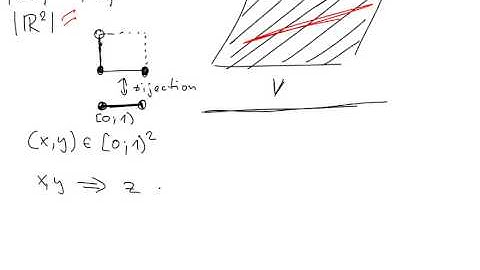 |ℝ²| =
↕ bijection
[0,1)
V
(x,y) ∈ [0,1)²
x,y ⇒ z .